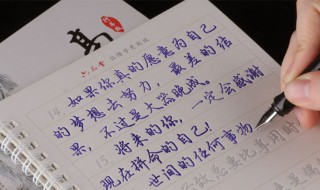 萬
六品堂
如果你真的愿意为自己
的梦想去努力,最差的结
果,不过是大器晚成。
15. 将来的你,一定会感谢
现在拼命的自己!
世间的任何事物